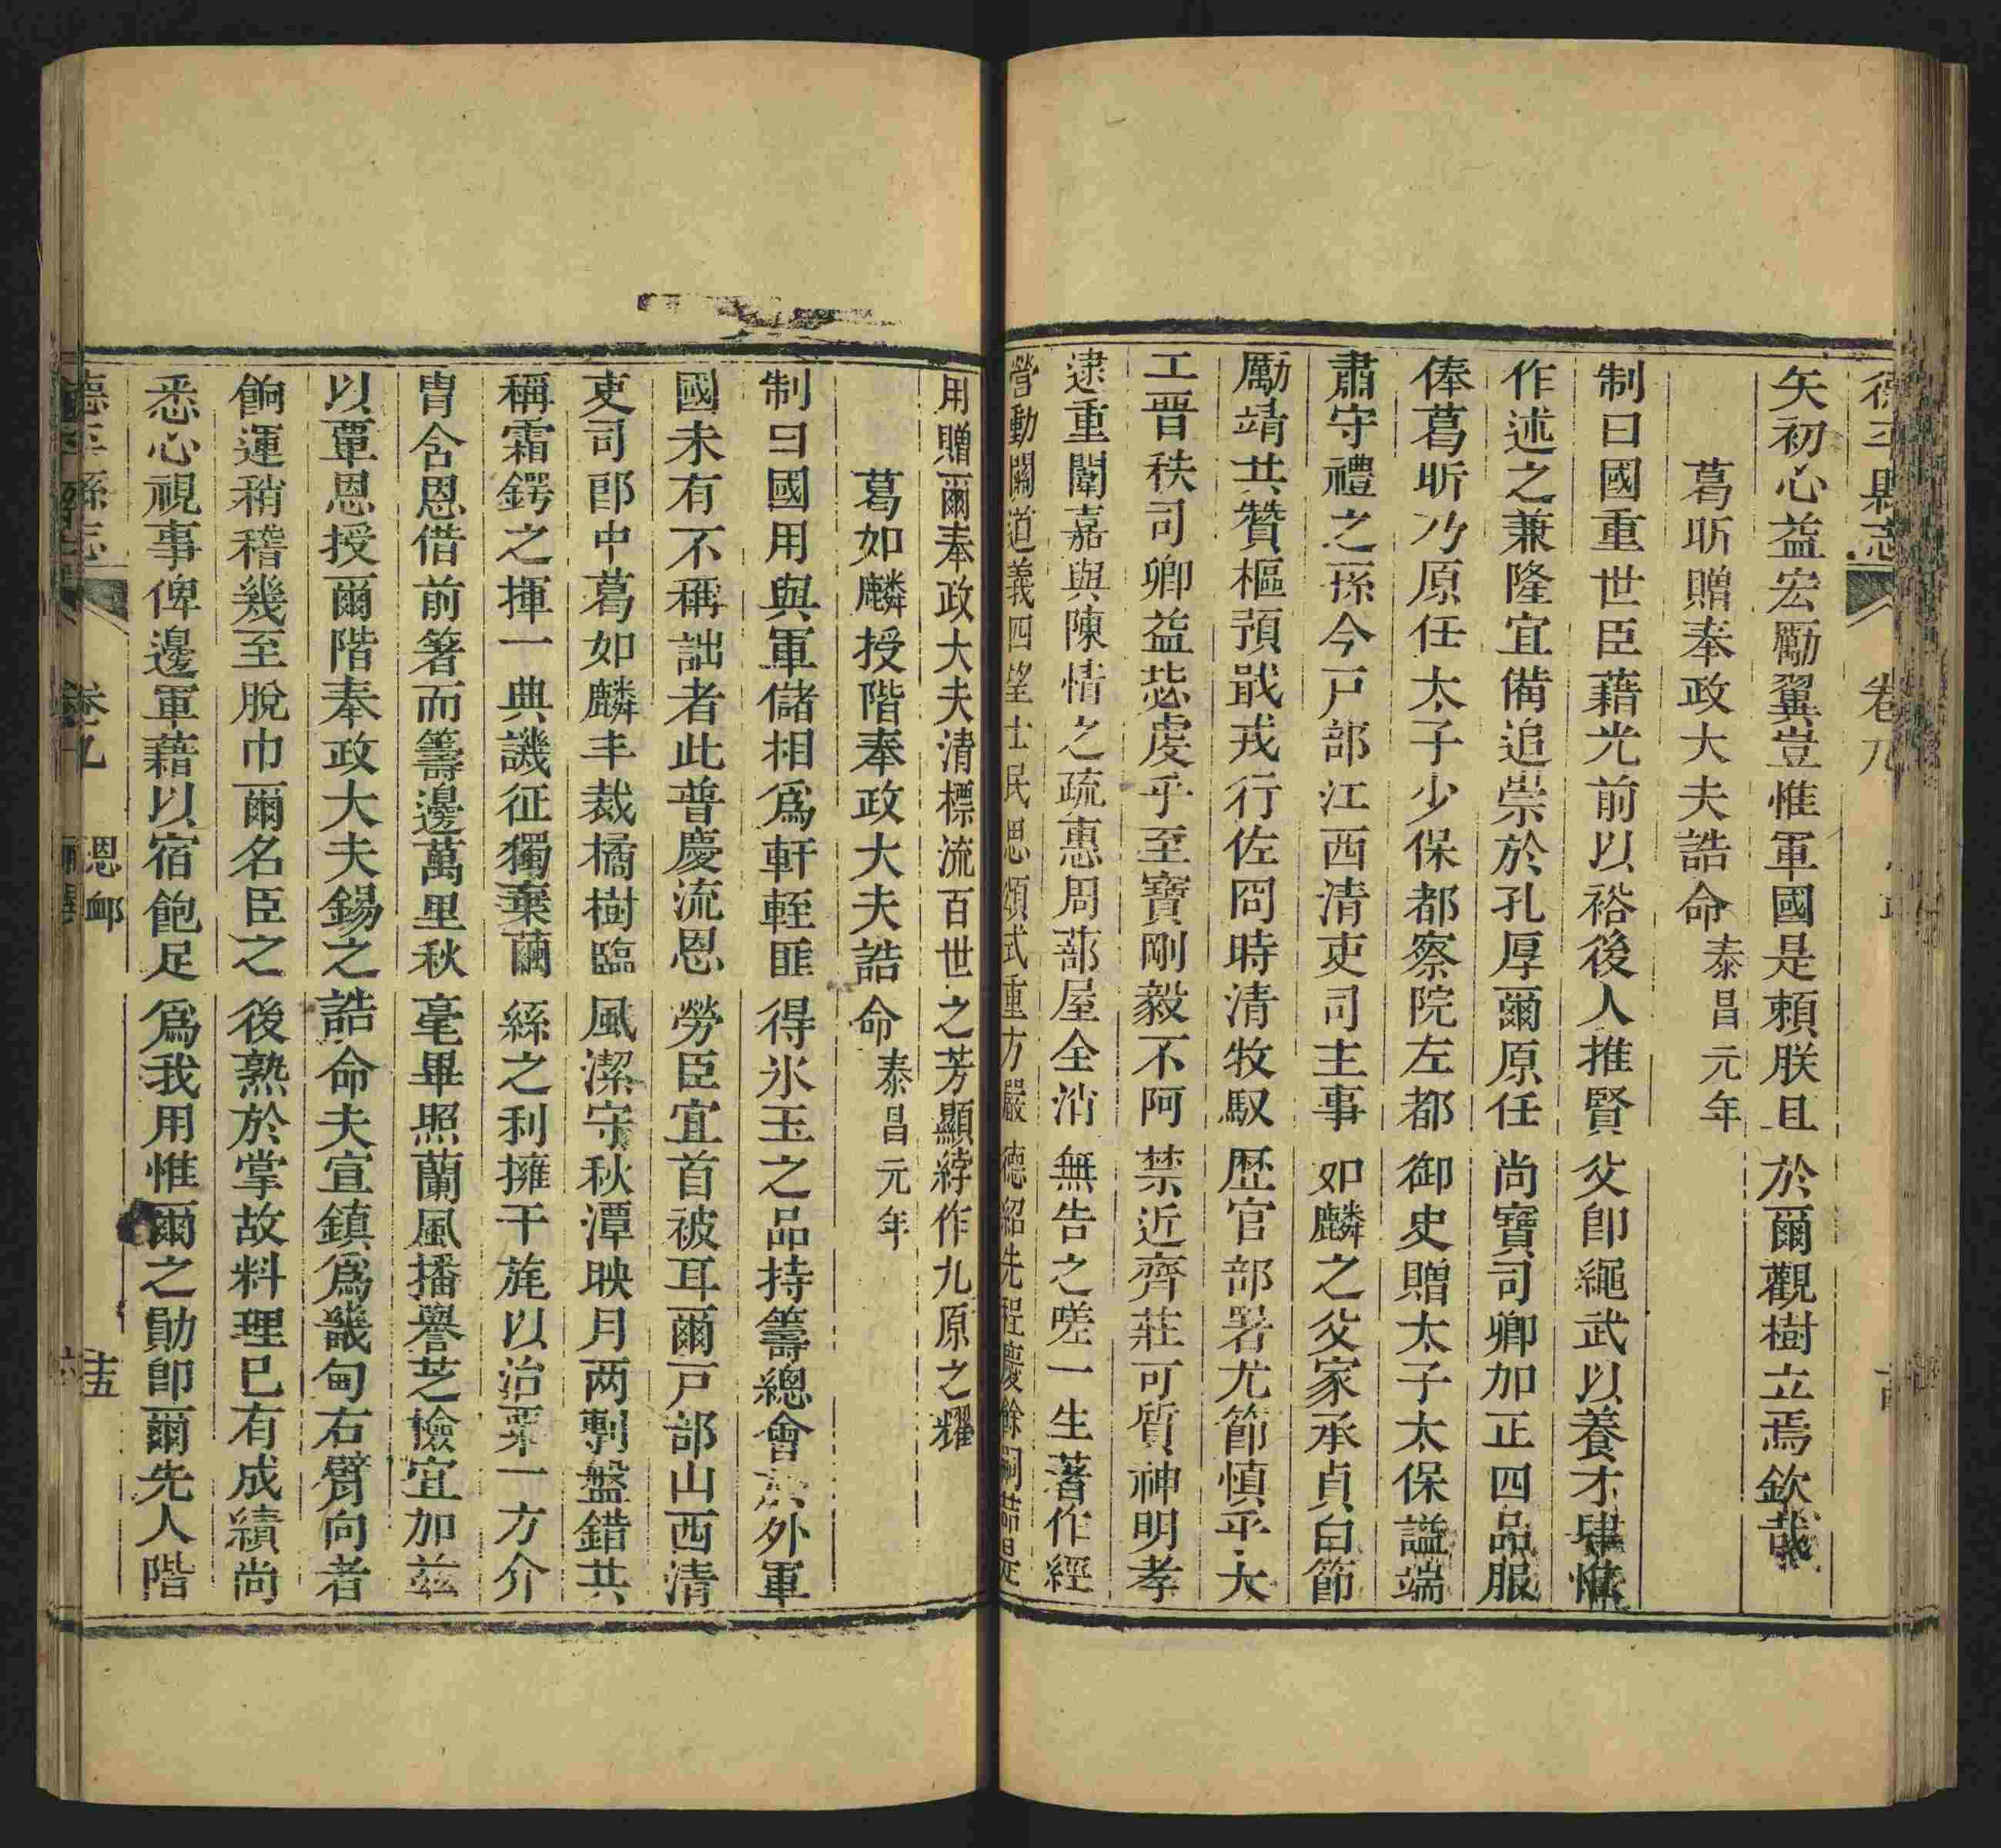 德平縣志 卷九
矢初心益宏勵翼豈惟軍國是賴朕且於爾觀樹立焉欽哉
葛昕贈奉政大夫誥命泰昌元年
制曰國重世臣藉光前以裕後人推賢父卽繩武以養才肆惟
作述之兼隆宜備追崇於孔厚爾原任尚寶司卿加正四品服
俸葛昕乃原任太子少保都察院左都御史贈太子太保謚端
肅守禮之孫今戸部江西清吏司主事如麟之父家承貞白節
勵靖共贊樞預戢戎行佐冏時清牧馭歷官部署尤節慎乎大
工晉秩司卿益惎虔乎至寶剛毅不阿禁近齊莊可質神明孝
逮重闈嘉與陳情之疏惠周蔀屋全消無告之嗟一生著作經
營動關道義四望士民思頌式重方嚴德紹先程慶餘嗣
用贈爾奉政大夫清標流百世之芳顯綍作九原之耀
葛如麟授階奉政大夫誥命泰昌元年
制曰國用與軍儲相爲軒輊匪得氷玉之品持籌總會於外軍
國未有不稱詘者此普慶流恩勞臣宜首被耳爾戸部山西清
吏司郎中葛如麟丰裁橘樹臨風潔守秋潭映月两剸盤錯共
稱霜鍔之揮一典譏征獨棄繭絲之利擁干旄以治粟一方介
冑含恩借前箸而籌邊萬里秋毫畢照蘭風播譽芝檢宜加兹
以覃恩授爾階奉政大夫錫之誥命夫宣鎮爲畿甸右臂向者
餉運稍稽幾至脫巾爾名臣之後熟於掌故料理已有成績尚
悉心視事俾邊軍藉以宿飽足爲我用惟爾之勛卽爾先人階
德平縣志 卷九 恩卹 十五